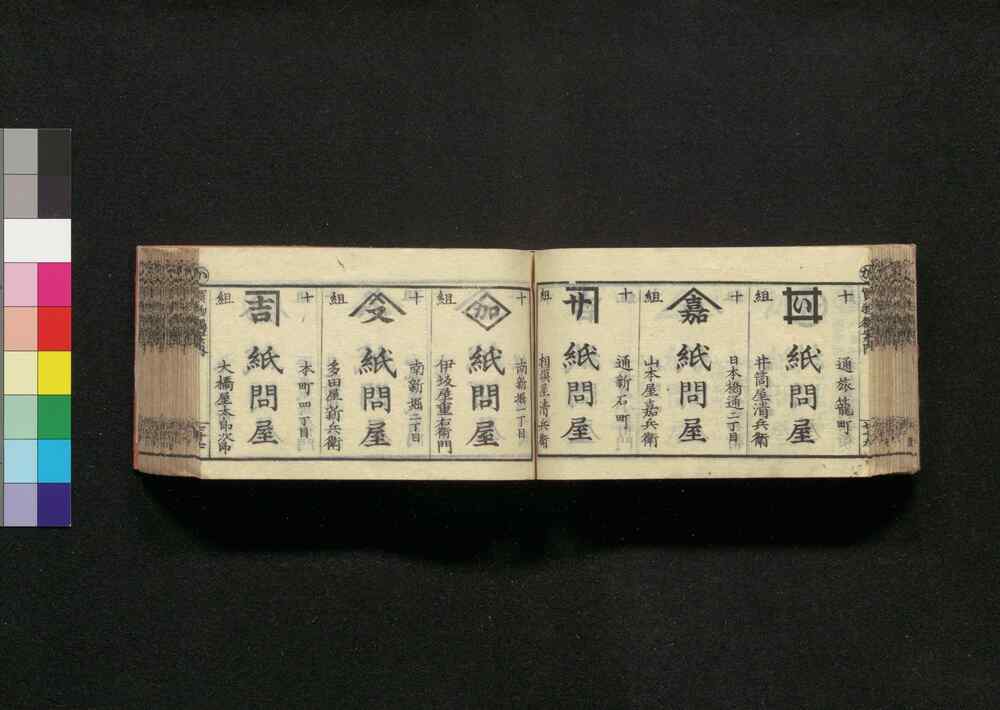 十組
い
紙問屋
通旅籠町
井筒屋清兵衛
十組
嘉
紙問屋
日本橋通二丁目
山本屋嘉兵衛
十組
サ
紙問屋
通新石町
相模屋清兵衛
十組
加
紙問屋
南新堀一丁目
伊坂屋重右衛門
十組
紙問屋
南新堀二丁目
多田屋新兵衛
十組
吉
紙問屋
本町四丁目
大橋屋太郎次郎